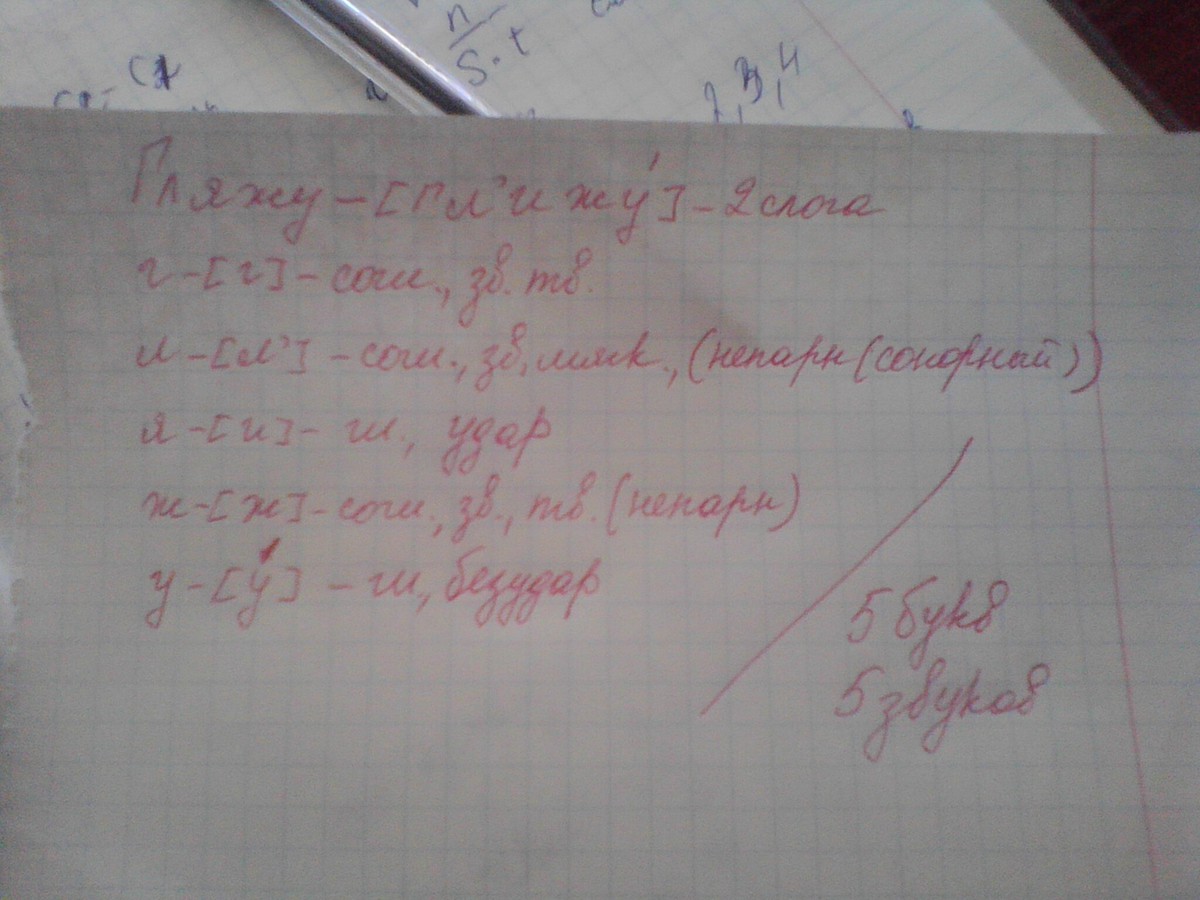 n
S·t
2, 3, 4
Гляжу – [гл'ижу́] – 2 слога
г – [г] – согл., зв. тв.
л – [л'] – согл., зв, мяк., (непарн (сонорный))
я – [и] – гл., удар
ж – [ж] – согл., зв., тв. (непарн)
у – [у́] – гл, безудар
5 букв
5 звуков